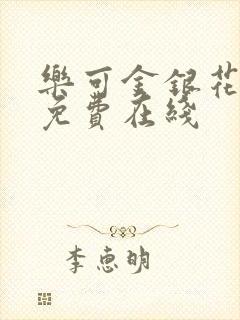 樂可金銀花
免費在綫
李惠明